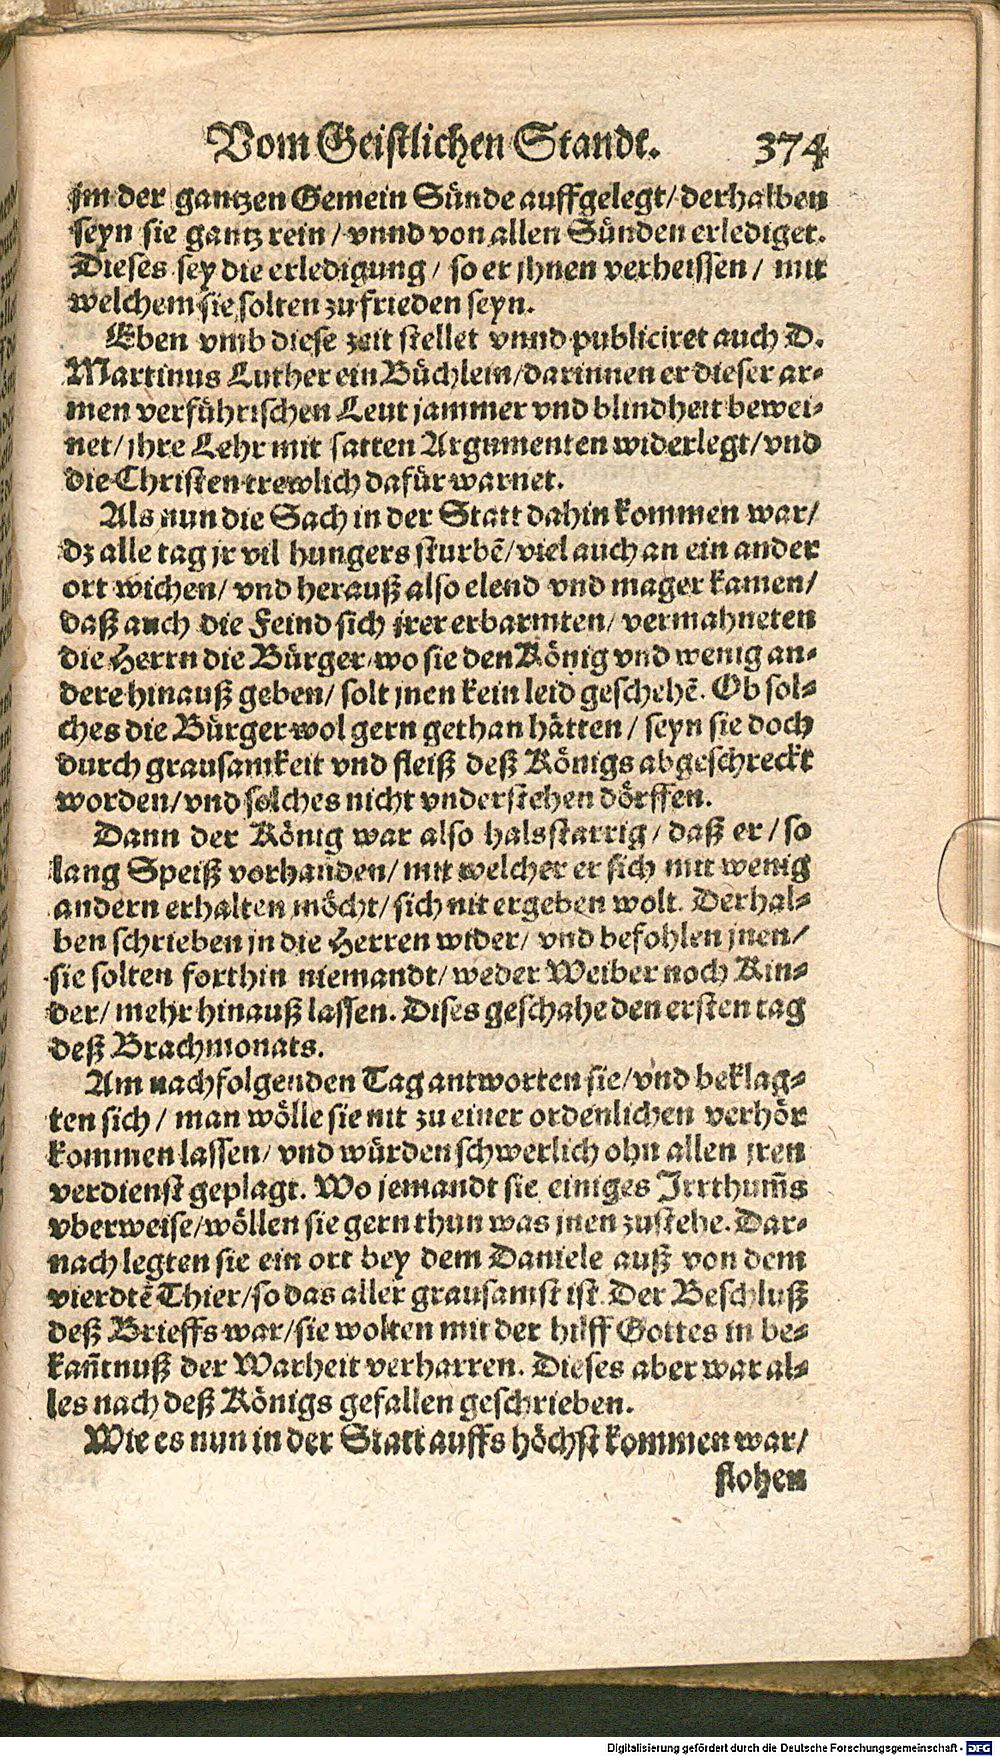 Vom Geistlichen Standt. 374
jm der gantzen Gemein Sünde auffgelegt/ derhalben
seyn sie gantz rein / vnnd von allen Sünden erlediget.
Dieses sey die erledigung / so er jhnen verheissen / mit
welchem sie solten zu frieden seyn.
Eben vmb diese zeit stellet vnnd publiciret auch D.
Martinus Luther ein Büchlein/ darinnen er dieser ar-
men verführischen Leut jammer vnd blindheit bewei-
net/ jhre Lehr mit satten Argumenten widerlegt/ vnd
die Christen trewlich dafür warnet.
Als nun die Sach in der Statt dahin kommen war/
dz alle tag jr vil hungers sturbẽ/ viel auch an ein ander
ort wichen/ vnd herauß also elend vnd mager kamen/
daß auch die Feind sich jrer erbarmten/ vermahneten
die Herrn die Bürger/ wo sie den König vnd wenig an-
dere hinauß geben/ solt jnen kein leid geschehẽ. Ob sol-
ches die Bürger wol gern gethan hätten / seyn sie doch
durch grausamkeit vnd fleiß deß Königs abgeschreckt
worden/ vnd solches nicht vnderstehen dörffen.
Dann der König war also halsstarrig / daß er / so
lang Speiß vorhanden/ mit welcher er sich mit wenig
andern erhalten möcht/ sich nit ergeben wolt. Derhal-
ben schrieben jn die Herren wider/ vnd befohlen jnen/
sie solten forthin niemandt/ weder Weiber noch Kin-
der/ mehr hinauß lassen. Dises geschahe den ersten tag
deß Brachmonats.
Am nachfolgenden Tag antworten sie/ vnd beklag-
ten sich / man wölle sie nit zu einer ordenlichen verhör
kommen lassen/ vnd würden schwerlich ohn allen jren
verdienst geplagt. Wo jemandt sie einiges Jrrthum̃s
vberweise/ wöllen sie gern thun was jnen zustehe. Dar-
nach legten sie ein ort bey dem Daniele auß von dem
vierdtẽ Thier/ so das aller grausamst ist. Der Beschluß
deß Brieffs war/ sie wolten mit der hilff Gottes in be-
kañtnuß der Warheit verharren. Dieses aber war al-
les nach deß Königs gefallen geschrieben.
Wie es nun in der Statt auffs höchst kommen war/
flohen
Digitalisierung gefördert durch die Deutsche Forschungsgemeinschaft - DFG